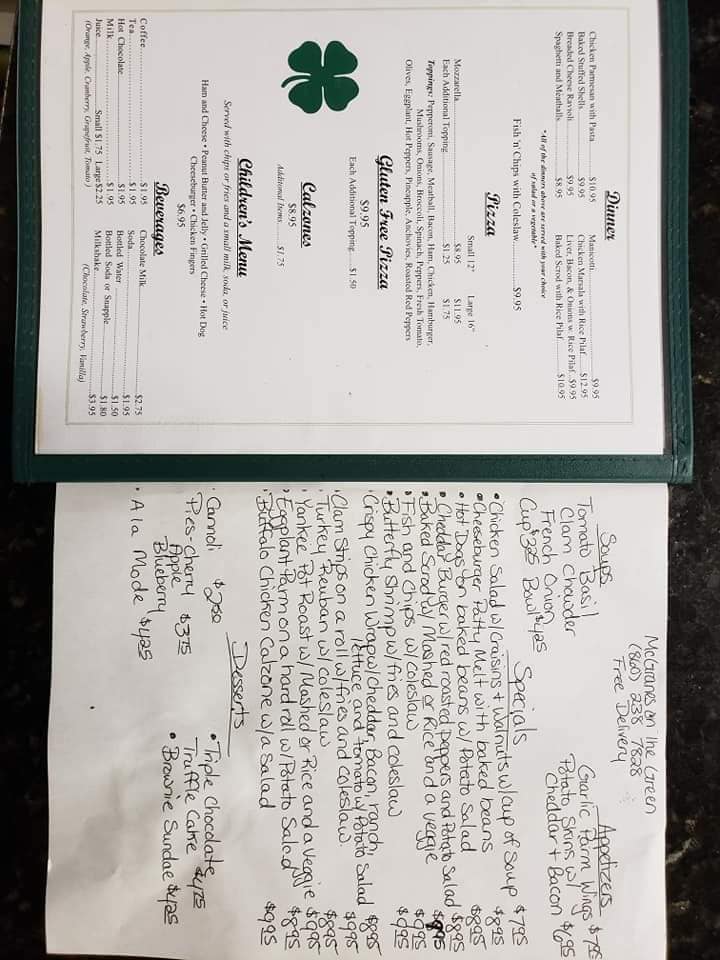 Dinner
Chicken Parmesan with Pasta $10.95 Manicotti $9.95
Baked Stuffed Shells $9.95 Chicken Marsala with Rice Pilaf $12.95
Breaded Cheese Ravioli $9.95 Liver, Bacon, & Onions w. Rice Pilaf $9.95
Spaghetti and Meatballs $8.95 Baked Scrod with Rice Pilaf $10.95
*All of the dinners above are served with your choice
of salad or vegetable*
Fish 'n' Chips with Coleslaw $9.95
Pizza
Small 12" Large 16"
Mozzarella $8.95 $11.95
Each Additional Topping $1.25 $1.75
Toppings: Pepperoni, Sausage, Meatball, Bacon, Ham, Chicken, Hamburger,
Mushrooms, Onions, Broccoli, Spinach, Peppers, Fresh Tomato,
Olives, Eggplant, Hot Peppers, Pineapple, Anchovies, Roasted Red Peppers
Gluten Free Pizza
$9.95
Each Additional Topping $1.50
Calzones
$8.95
Additional Items $1.75
Children's Menu
Served with chips or fries and a small milk, soda, or juice
Ham and Cheese • Peanut Butter and Jelly • Grilled Cheese • Hot Dog
Cheeseburger • Chicken Fingers
$6.95
Beverages
Coffee $1.95 Chocolate Milk $2.75
Tea $1.95 Soda $1.95
Hot Chocolate $1.95 Bottled Water $1.50
Milk $1.95 Bottled Soda or Snapple $1.80
Juice Small $1.75 Large $2.25 Milkshake $3.95
(Orange, Apple, Cranberry, Grapefruit, Tomato) (Chocolate, Strawberry, Vanilla)
McGranes on The Green
(860) 238 7828
Free Delivery
Soups
Tomato Basil
Clam Chowder
French Onion
Cup $3.25 Bowl $4.25
Appetizers
Garlic Parm Wings $7.95
Potato Skins w/
Cheddar + Bacon $6.95
Specials
• Chicken Salad w/Craisins + Walnuts w/cup of soup $7.95
• Cheeseburger Patty Melt with baked beans $8.95
• Hot Dogs on baked beans w/Potato Salad $8.95
• Cheddar Burger w/red roasted peppers and Potato Salad $8.95
• Baked Scrod w/ Mashed or Rice and a veggie
• Fish and Chips w/Coleslaw $9.95
• Butterfly Shrimp w/fries and coleslaw $9.95
• Crispy Chicken Wrap w/Cheddar, Bacon, ranch,
lettuce and tomato w/Potato Salad $8.95
• Clam Strips on a roll w/fries and coleslaw $9.95
• Turkey Reuban w/coleslaw $8.95
• Yankee Pot Roast w/Mashed or Rice and a veggie $9.95
• Eggplant Parm on a hard roll w/Potato Salad $8.95
• Buffalo Chicken Calzone w/a Salad $9.95
Desserts
• Cannoli $2.50
Pies - Cherry
Apple $3.75
Blueberry
• A la Mode $4.25
• Triple Chocolate
Truffle Cake $4.75
• Brownie Sundae $4.25